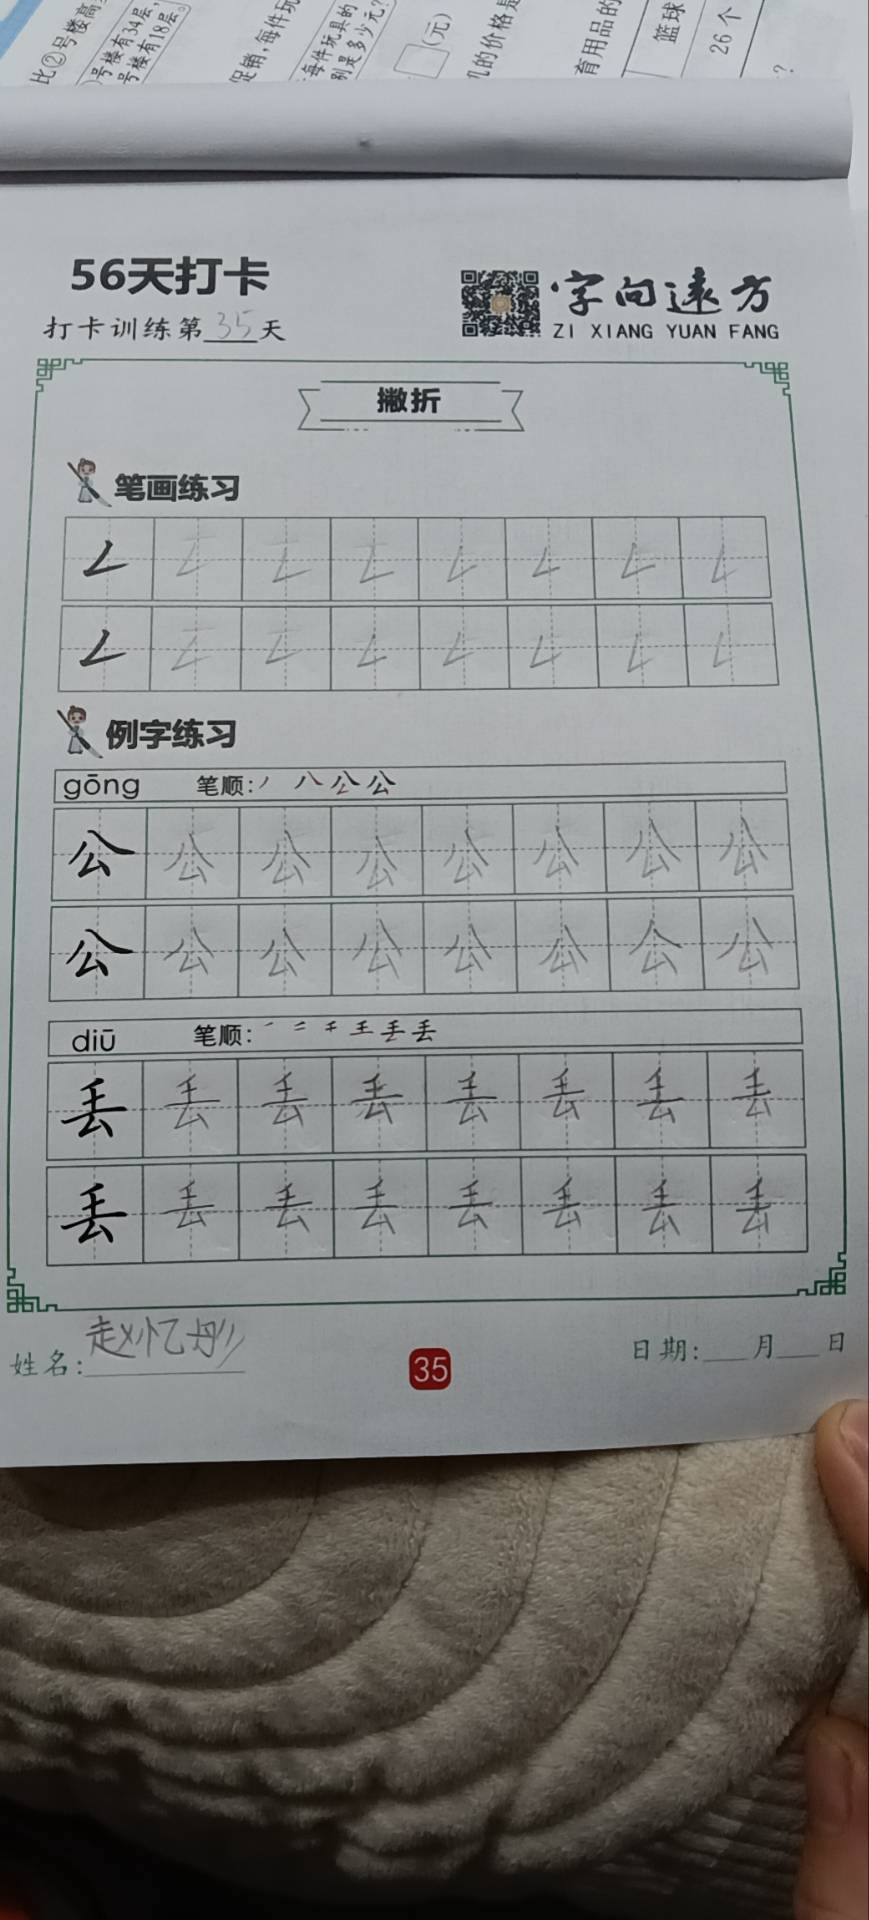 比②号楼高
号楼有34层,
号楼有18层。
促销,每件玩
每件玩具的
别是多少元?
(元)
几的价格是
育用品的
篮球
26个
?
56天打卡
打卡训练第35天
字向遠方
ZI XIANG YUAN FANG
撇折
笔画练习
例字练习
gōng 笔顺:丿 八 公 公
公 公 公 公 公 公 公 公
公 公 公 公 公 公 公 公
diū 笔顺:一 二 千 王 丢 丢
丢 丢 丢 丢 丢 丢 丢 丢
丢 丢 丢 丢 丢 丢 丢 丢
姓名:赵忆
35
日期:___月___日